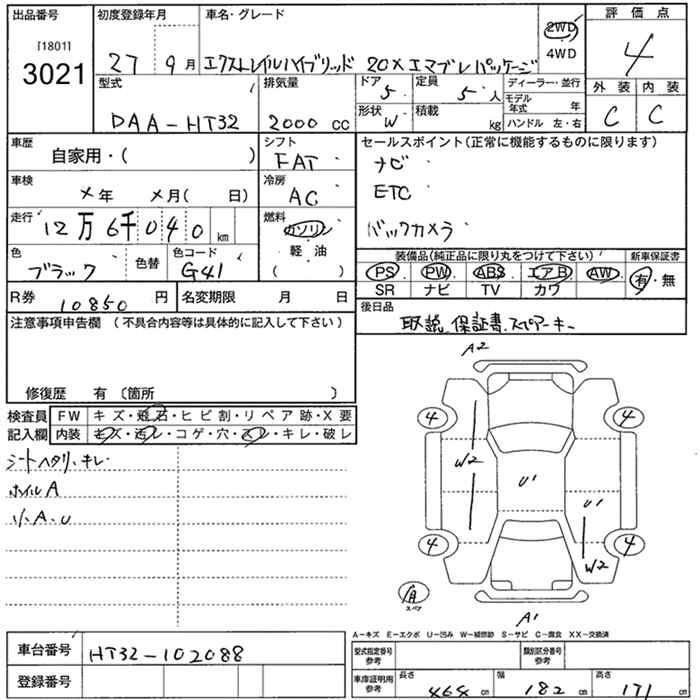 出品番号
[1801]
3021
初度登録年月
27 9月
車名・グレード
エクストレイルハイブリッド 20X エマブレパッケージ
2WD
4WD
評価点
4
外装 内装
C C
型式
DAA-HT32
排気量
2000 cc
ドア 5
定員 5人
ディーラー・並行
形状 W
積載 kg
モデル年式 年
ハンドル 左・右
車歴
自家用・( )
シフト
FAT
セールスポイント(正常に機能するものに限ります)
ナビ
ETC
バックカメラ
車検
×年 ×月( 日)
冷房
AC
走行
12万6千040 km
燃料
ガソリン
軽・油
( )
色
ブラック
色替
色コード
G41
装備品(純正品に限り丸をつけて下さい)
PS PW ABS エアB AW
SR ナビ TV カワ
新車保証書
有・無
R券 10850円
名変期限 月 日
後日品
取説 保証書 スペアーキー
注意事項申告欄 (不具合内容等は具体的に記入して下さい)
修復歴 有 〔箇所 〕
検査員
記入欄
FW キズ・飛石・ヒビ割・リペア跡・X要
内装 キズ・汚レ・コゲ・穴・スレ・キレ・破レ
シートヘタリ、キレ
ホイルA
小、A、U
A2
4 4
W2
U1
U1
4 4
W2
スペア
A1
A-キズ E-エクボ U-凹み W-補修跡 S-サビ C-腐食 XX-交換済
車台番号 HT32-102088
登録番号
型式指定番号 参考
類別区分番号 参考
車庫証明用 参考
長さ 464 cm
幅 182 cm
高さ 171 cm